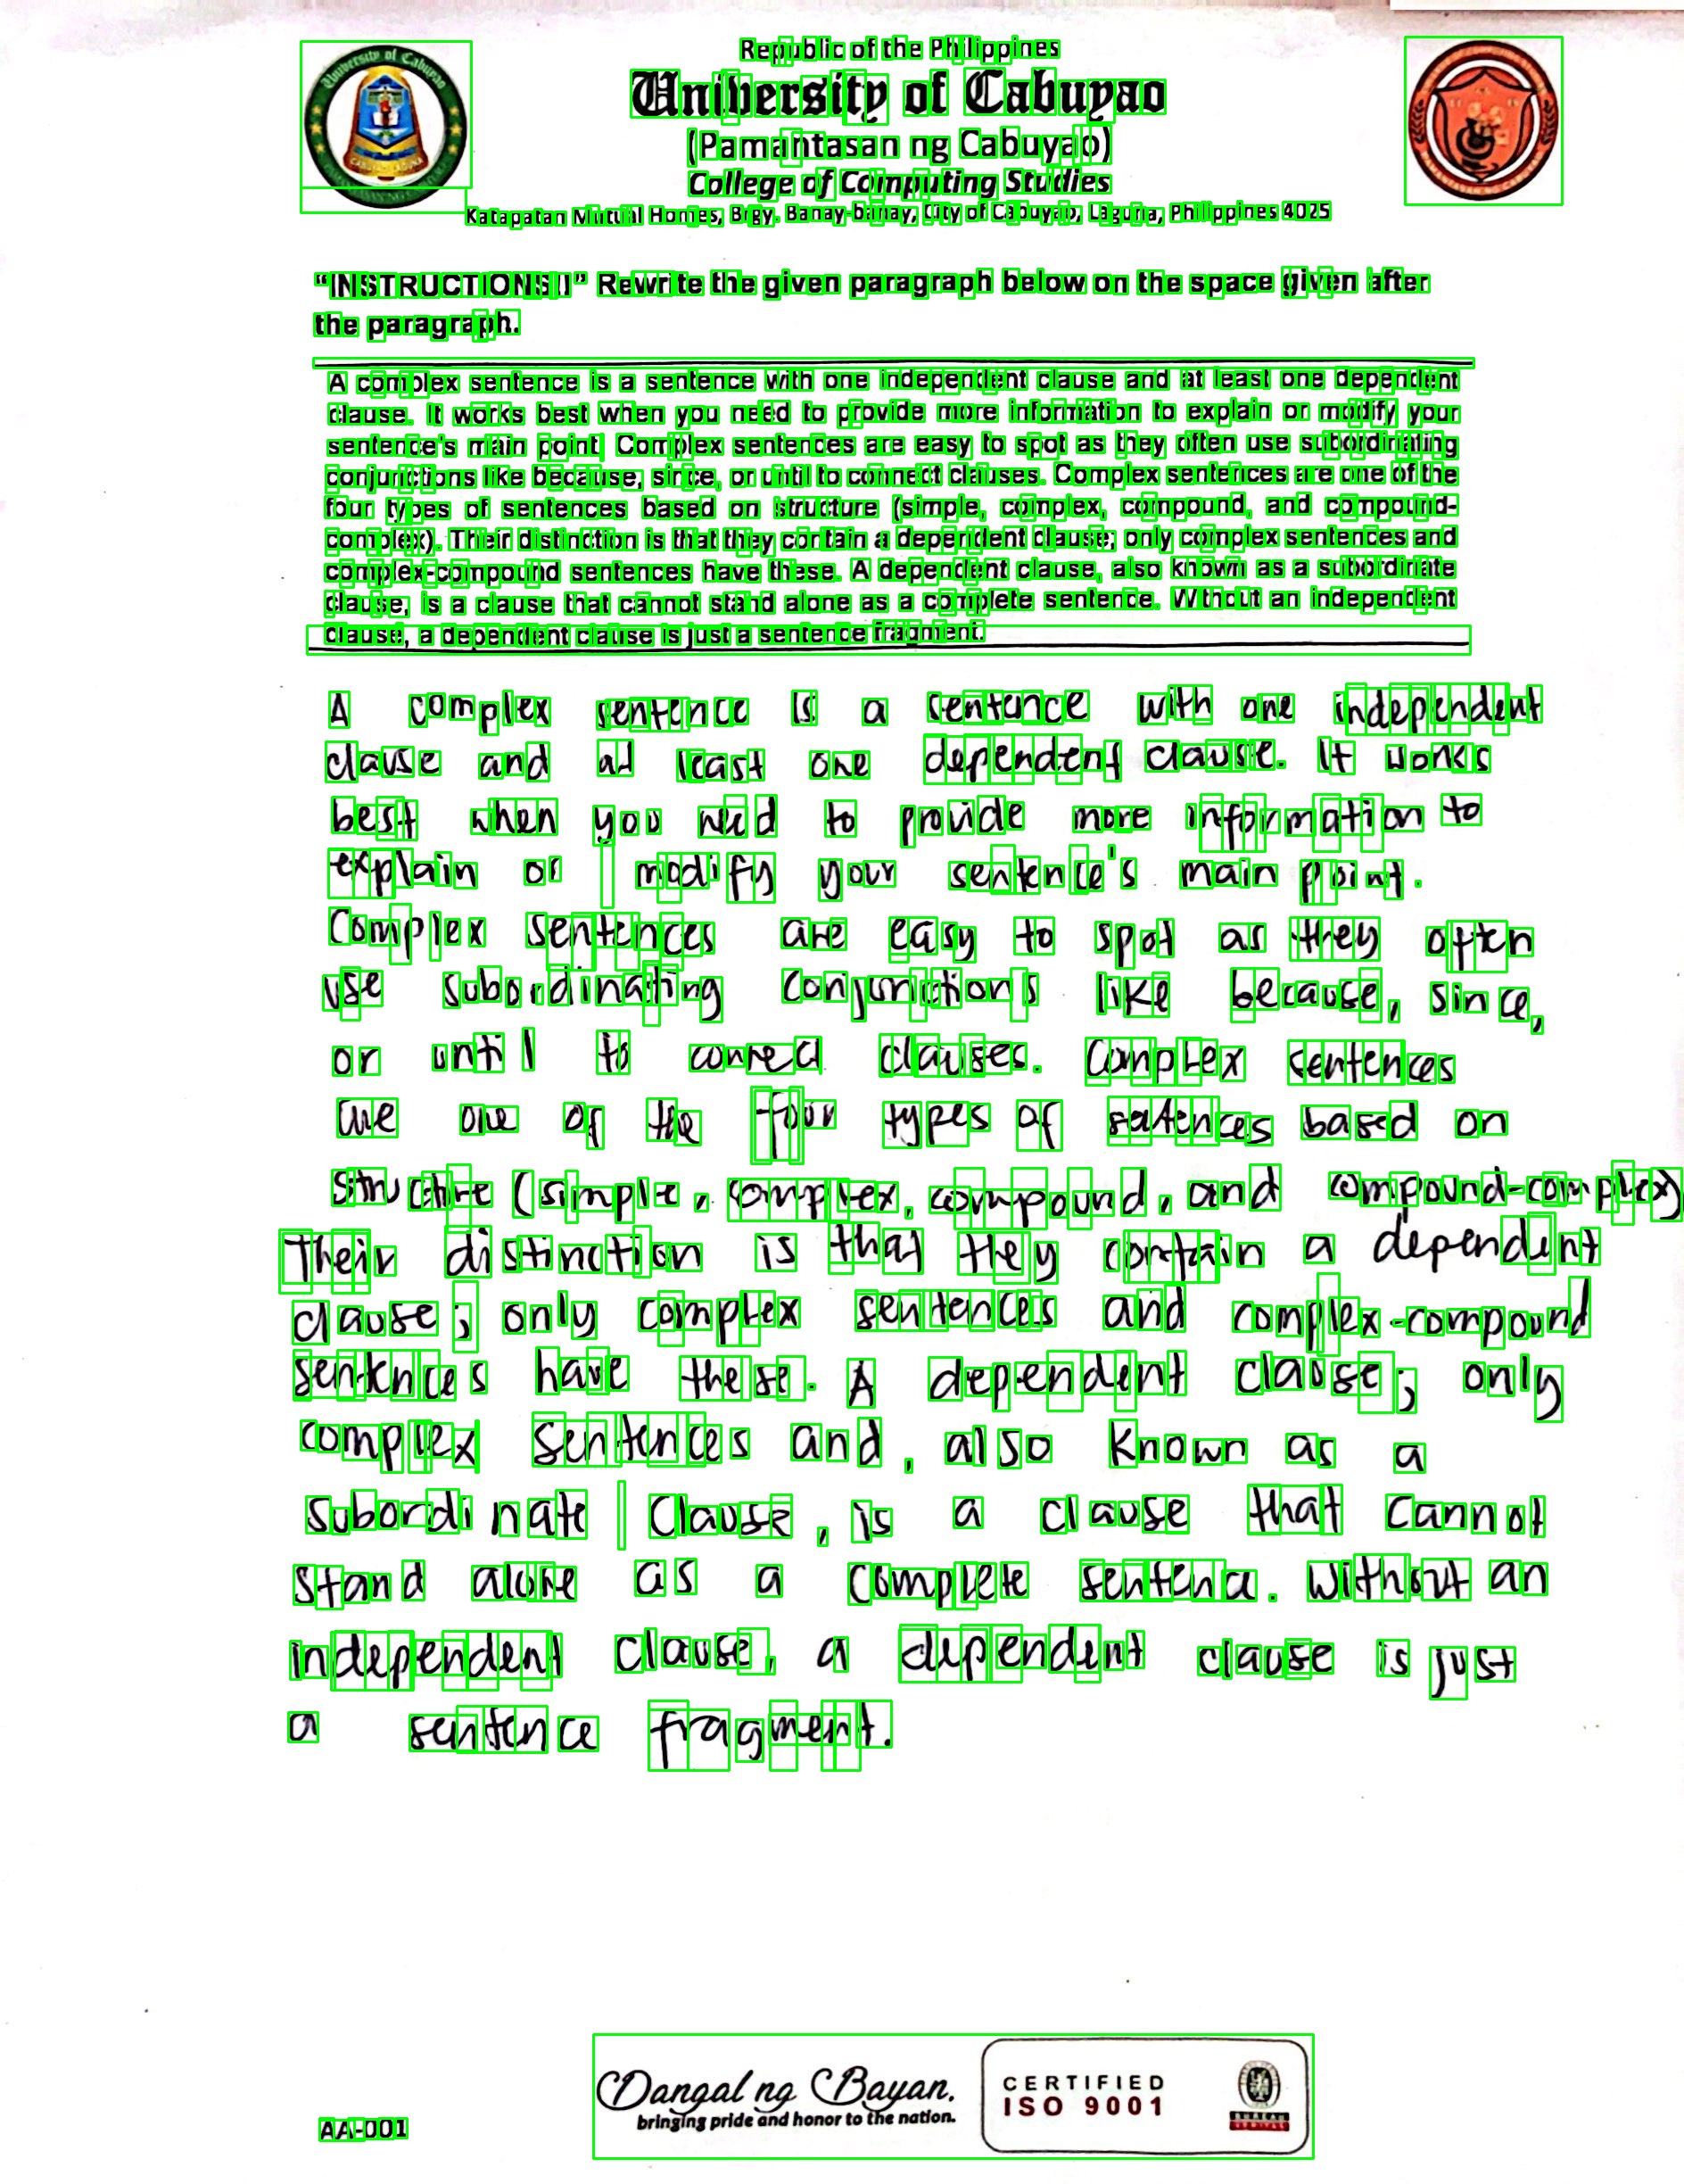 Republic of the Philippines
University of Cabuyao
(Pamantasan ng Cabuyao)
College of Computing Studies
Katapatan Mutual Homes, Brgy. Banay-banay, City of Cabuyao, Laguna, Philippines 4025
“INSTRUCTIONS!!” Rewrite the given paragraph below on the space given after
the paragraph.
A complex sentence is a sentence with one independent clause and at least one dependent
clause. It works best when you need to provide more information to explain or modify your
sentence's main point. Complex sentences are easy to spot as they often use subordinating
conjunctions like because, since, or until to connect clauses. Complex sentences are one of the
four types of sentences based on structure (simple, complex, compound, and compound-
complex). Their distinction is that they contain a dependent clause; only complex sentences and
complex-compound sentences have these. A dependent clause, also known as a subordinate
clause, is a clause that cannot stand alone as a complete sentence. Without an independent
clause, a dependent clause is just a sentence fragment.
A complex sentence is a sentence with one independent
clause and at least one dependent clause. It works
best when you need to provide more information to
explain or modify your sentence's main point.
Complex sentences are easy to spot as they often
use subordinating conjunctions like because, since,
or until to connect clauses. Complex sentences
are one of the four types of sentences based on
structure (simple, complex, compound, and compound-complex)
Their distinction is that they contain a dependent
clause; only complex sentences and complex-compound
sentences have these. A dependent clause; only
complex sentences and, also known as a
subordinate clause, is a clause that cannot
stand alone as a complete sentence. Without an
independent clause, a dependent clause is just
a sentence fragment.
Dangal ng Bayan.
bringing pride and honor to the nation.
CERTIFIED
ISO 9001
BUREAU
VERITAS
AA-001